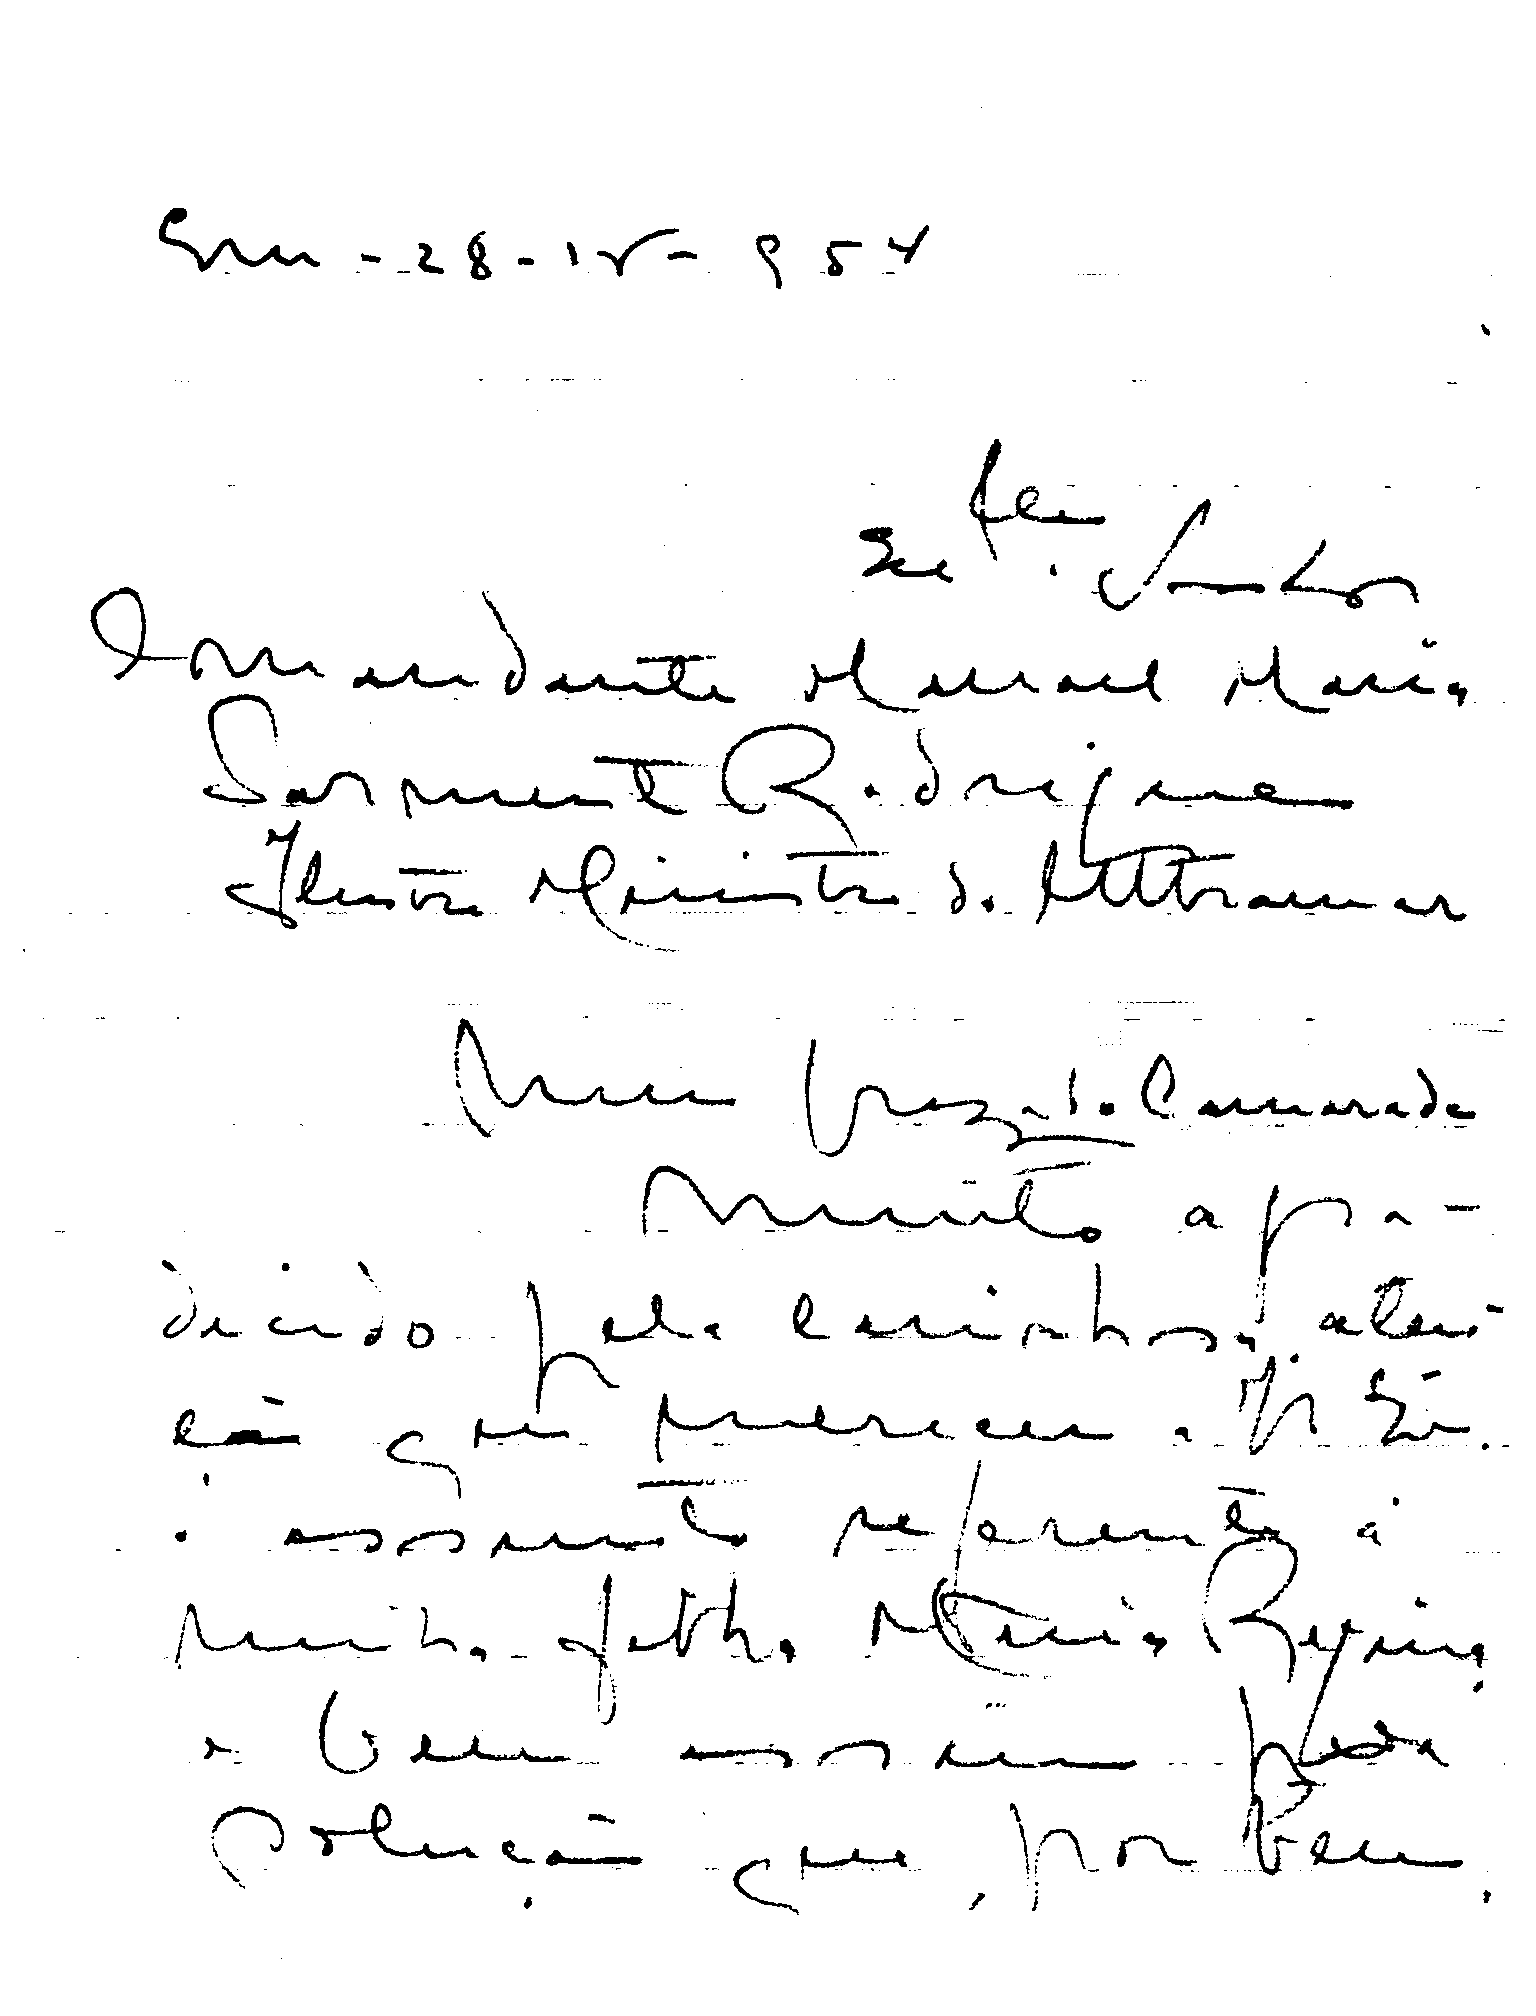 Em - 28-IV-954
Exmo. Senhor
Comandante Manoel Maria
Sarmento Rodrigues
Ilustre Ministro do Ultramar
Meu Prezado Camarada
Muito agra-
decido pela carinhosa aten-
ção que mereceu a V. Exª.
o assunto referente à
minha filha Maria Regina,
e bem assim pela
solução que, por bem,